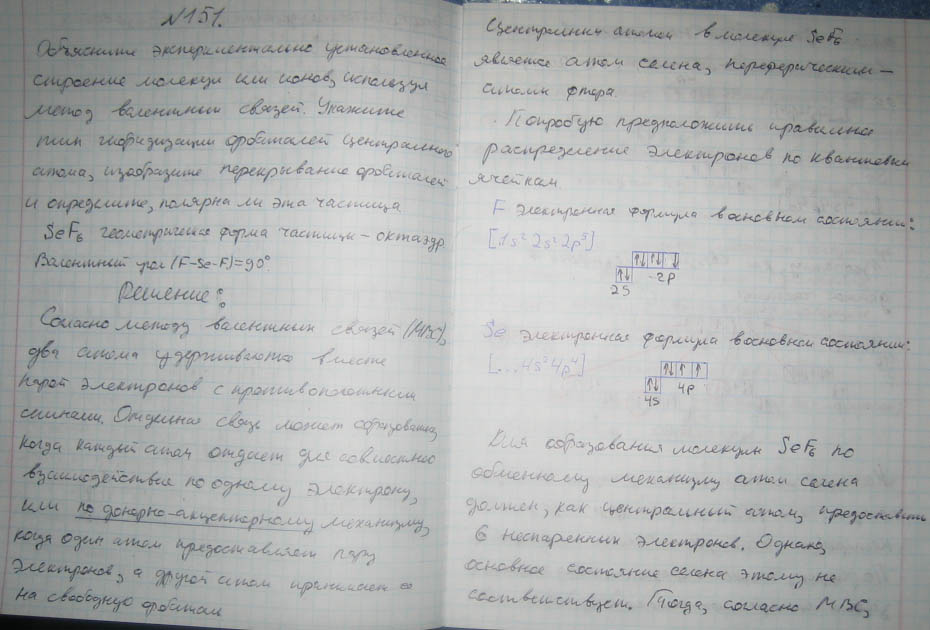 №151.
Объясните экспериментально установленное
строение молекул или ионов, используя
метод валентных связей. Укажите
тип гибридизации орбиталей центрального
атома, изобразите перекрывание орбиталей
и определите, полярна ли эта частица
SeF6 геометрическая форма частицы - октаэдр.
Валентный угол (F-Se-F)=90°.
Решение:
Согласно методу валентных связей (МВС),
два атома удерживаются вместе
парой электронов с противоположными
спинами. Отдельная связь может образоваться,
когда каждый атом отдает для совместного
взаимодействия по одному электрону,
или по донорно-акцепторному механизму,
когда один атом предоставляет пару
электронов, а другой атом принимает её
на свободную орбиталь
Центральным атомом в молекуле SeF6
является атом селена, переферическими —
атомы фтора.
Попробую предположить правильное
распределение электронов по квантовым
ячейкам.
F электронная формула в основном состоянии:
[1s² 2s² 2p⁵]
↑↓ ↑↓ ↓
↑↓ 2p
2s
Se электронная формула в основном состоянии:
[...4s² 4p⁴]
↑↓ ↑ ↑
↑↓ 4p
4s
Для образования молекулы SeF6 по
обменному механизму атом селена
должен, как центральный атом, предоставить
6 неспаренных электронов. Однако,
основное состояние селена этому не
соответствует. Тогда, согласно МВС,